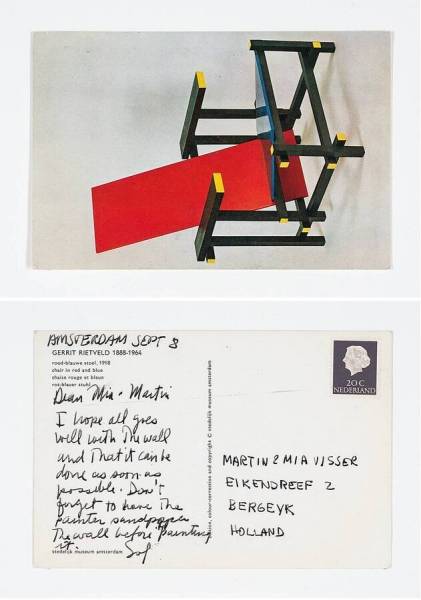 AMSTERDAM SEPT 8
GERRIT RIETVELD 1888-1964
rood-blauwe stoel, 1918
chair in red and blue
chaise rouge et bleue
rot-blauer stuhl
Dear Mia + Martin
I hope all goes
well with the wall
and that it can be
done as soon as
possible. Don't
forget to have the
painter sandpaper
the wall before painting
it.
Sol
stedelijk museum amsterdam
copyright © stedelijk museum amsterdam
20 C
NEDERLAND
MARTIN & MIA VISSER
EIKENDREEF 2
BERGEYK
HOLLAND